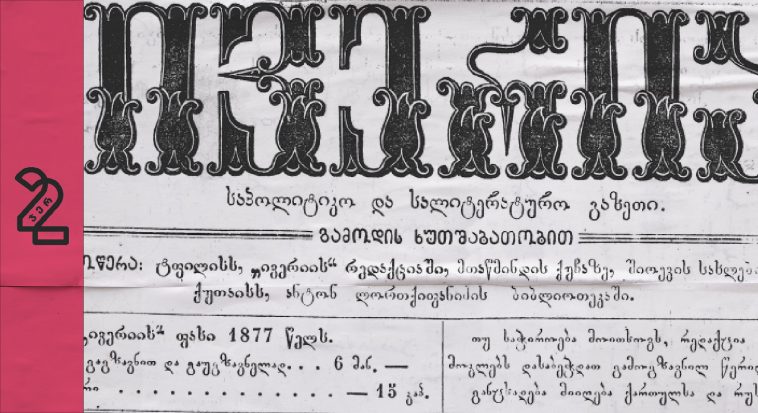 ივერია
2 ჯერ
საპოლიტიკო და სალიტერატურო გაზეთი.
გამოდის ხუთშაბათობით
ტფილისს, „ივერიის“ რედაქციაში, მთაწმინდის ქუჩაზე,
ქუთაისს, ანტონ ლორთქიფანიძის ბიბლიოთეკაში.
ივერიის“ ფასი 1877 წელს.
გაგზავნით და გაუგზავნელად. . . 6 მან. —
— 15 კაპ.
თუ საჭიროება მოითხოვს, რედაქცია
მოკლებს დასაბეჭდათ გამოგზავნილ
განცხადება მიიღება ქართულსა და